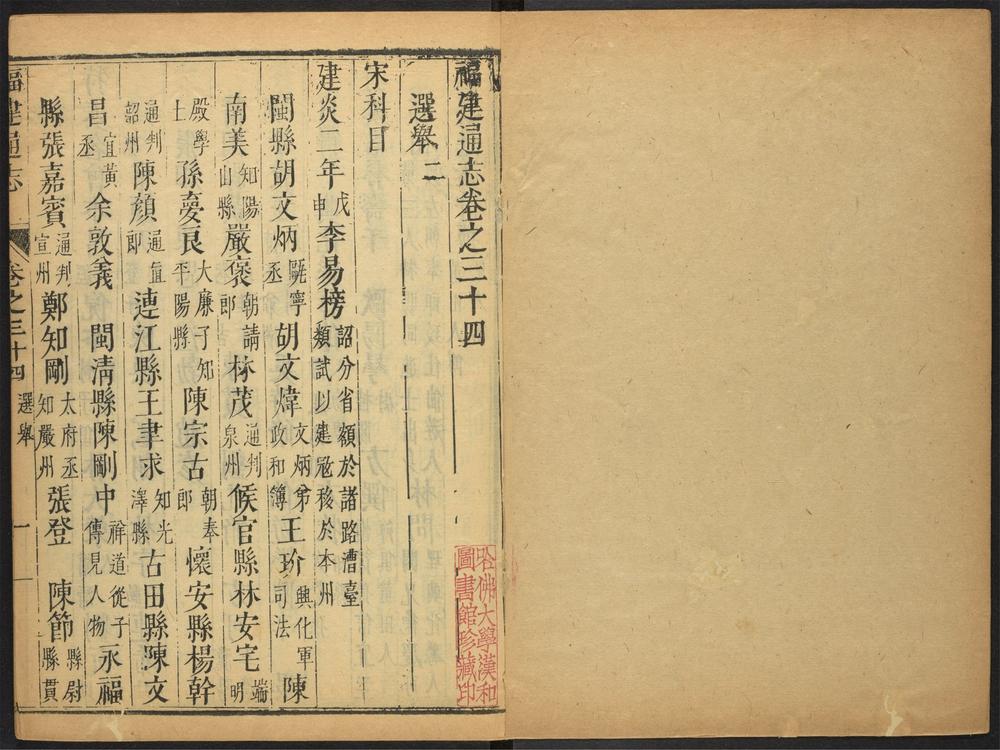 福建通志卷之三十四
選舉二
宋科目
建炎二年戊申李易榜詔分省額於諸路漕臺類試以建冦移於本州
閩縣胡文炳甌寧丞胡文煒文炳弟政和簿王玠興化軍司法陳
南美知陽山縣嚴褒朝請郎林茂通判泉州候官縣林安宅端明
殿學士孫憂民大廉子知平陽縣陳宗古朝奉郎懷安縣楊幹
通判韶州陳顏通直郎連江縣王聿求知光澤縣古田縣陳文
昌宜黃丞余敦義 閩清縣陳剛中祥道從子傳見人物永福
縣張嘉賓通判宣州鄭知剛太府丞知嚴州張登 陳節縣尉縣貫
福建通志 卷之三十四 選舉 一
哈佛大學漢和
圖書館珍藏印